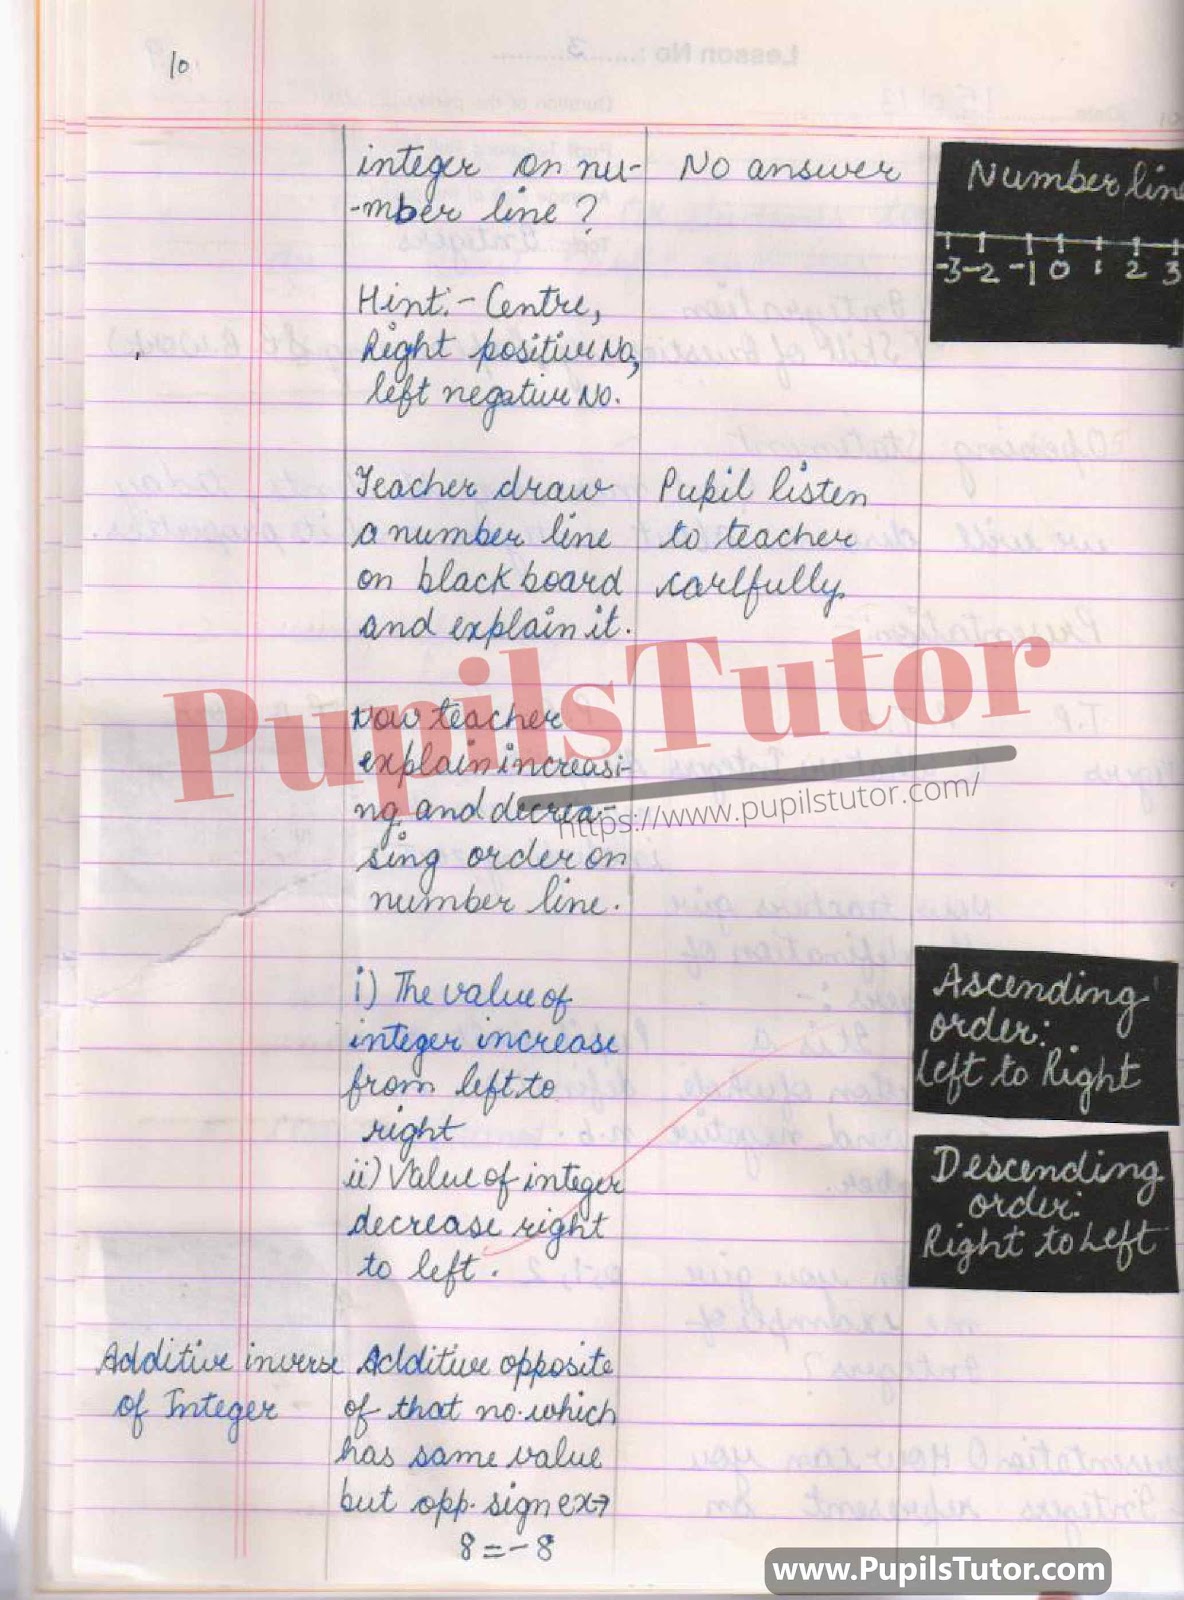 10
integer on nu-
-mber line?
No answer
Number line
-3 -2 -1 0 1 2 3
Hint:- Centre,
Right positive No,
left negative No.
Teacher draw
a number line
on black board
and explain it.
Pupil listen
to teacher
carlfully.
PupilsTutor
https://www.pupilstutor.com/
Now teacher
explain increasi-
ng and decrea-
sing order on
number line.
i) The value of
integer increase
from left to
right
ii) Value of integer
decrease right
to left.
Ascending
order:
Left to Right
Descending
order:
Right to Left
Additive inverse
of Integer
Additive opposite
of that no. which
has same value
but opp. sign ex→
8 = -8
www.PupilsTutor.com